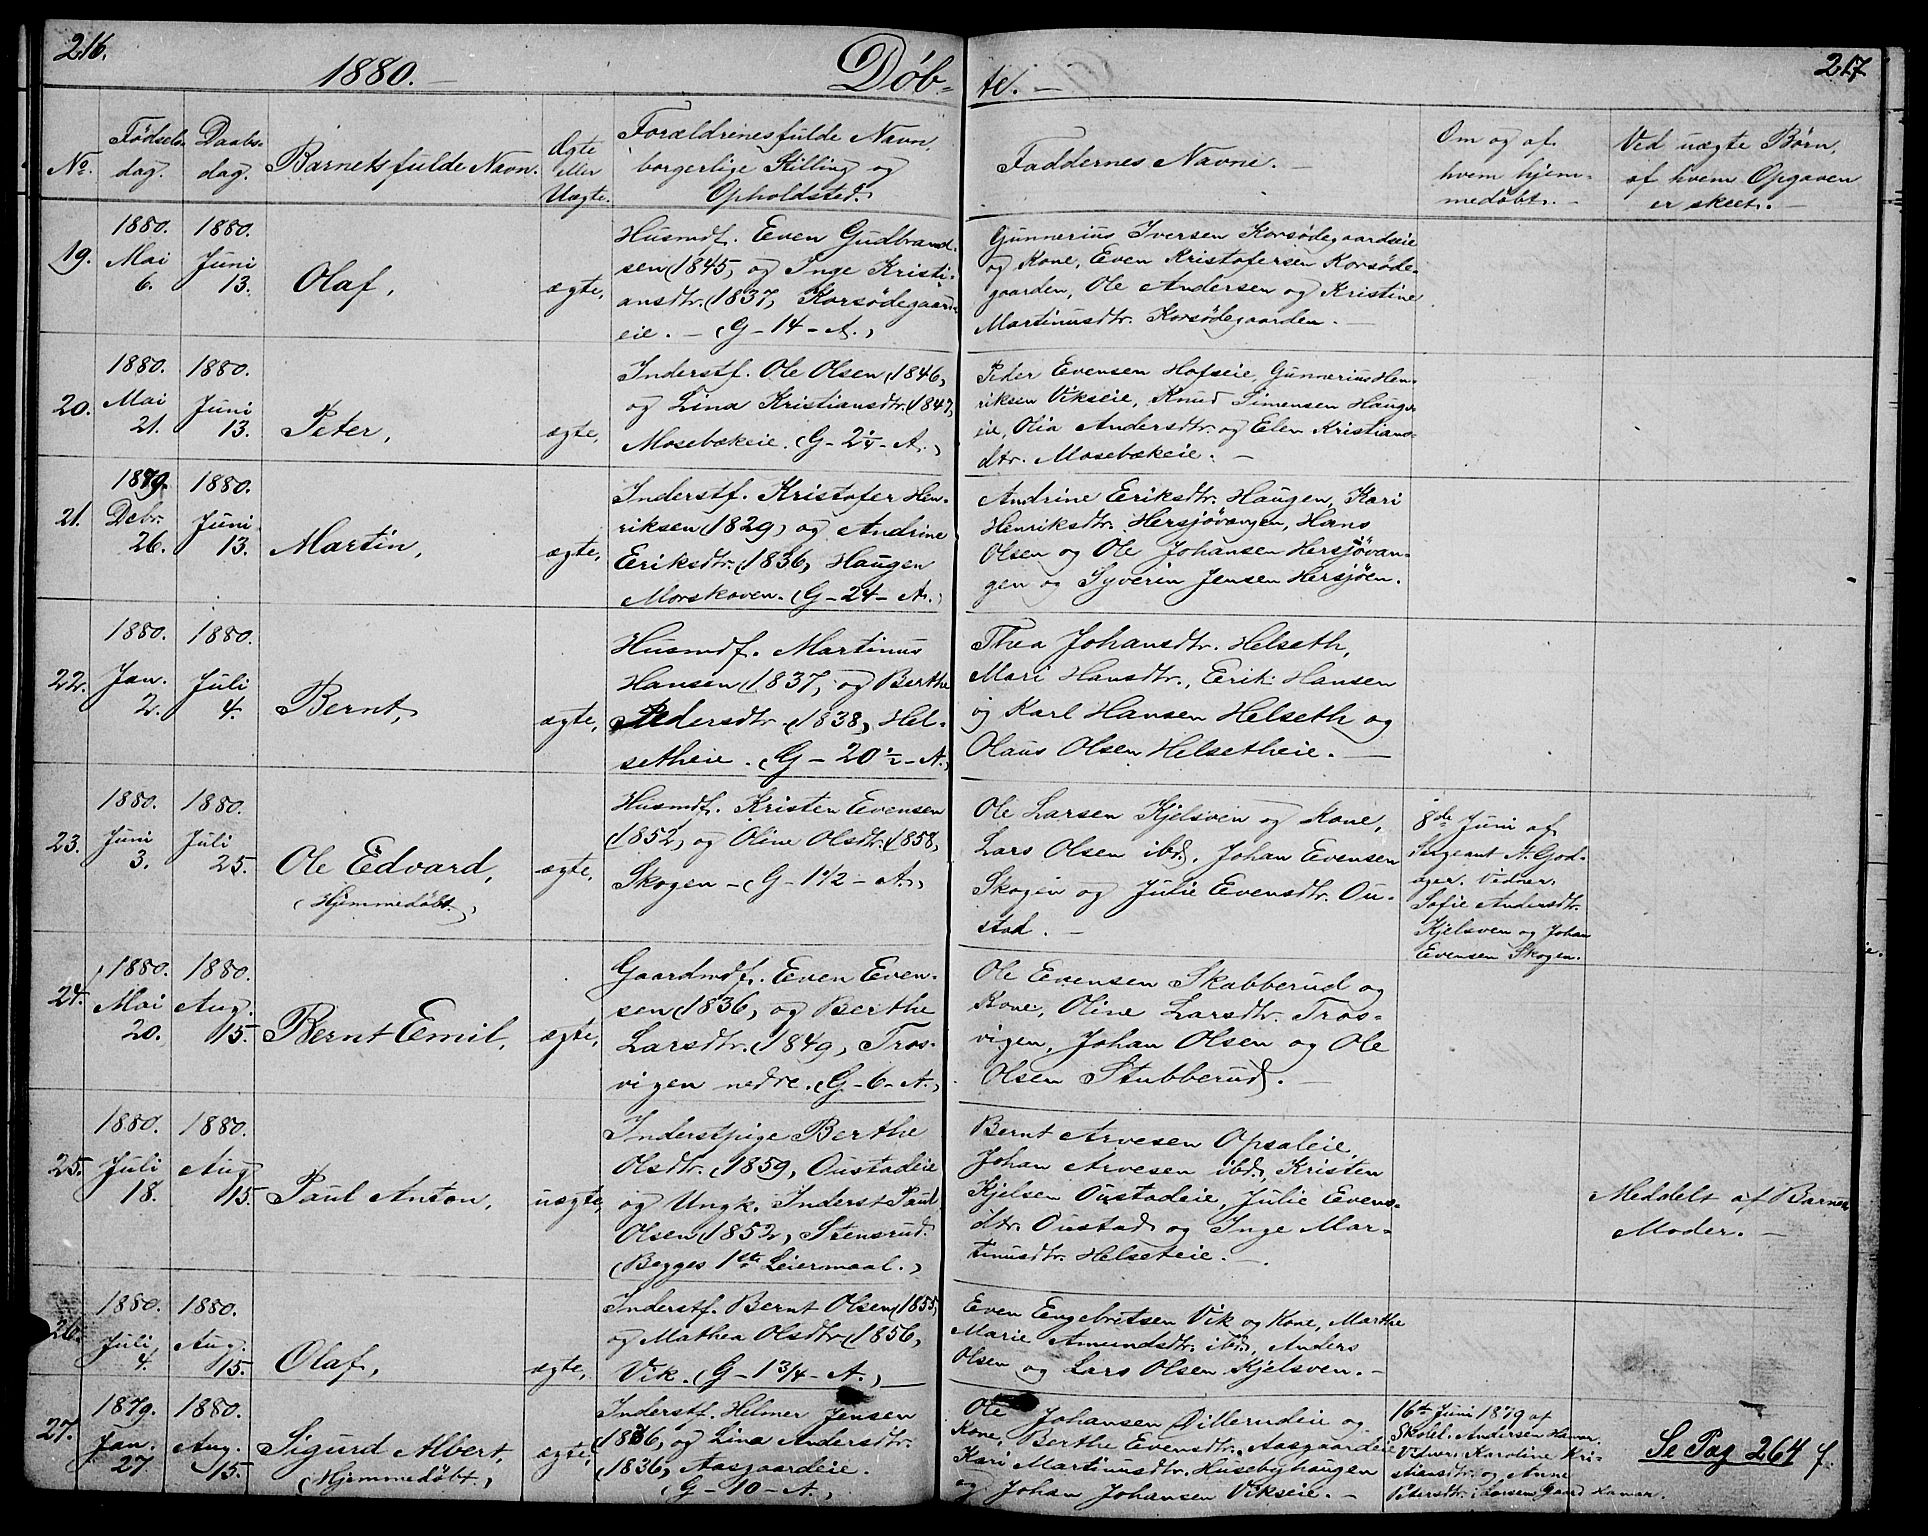 216.
1880. –
Døb-
te. –
217
No.
Fødsels-
dag.
Daabs-
dag.
Barnets fulde Navn.
Ægte
eller
Uægte.
Forældrenes fulde Navn,
borgerlige Stilling og
Opholdsted.
Faddernes Navne. –
Om og af
hvem hjem-
medøbt. –
Ved uægte Børn,
af hvem Opgaven
er skeet. –
19.
1880.
Mai
6.
1880.
Juni
13.
Olaf,
ægte,
Husmdf. Even Gudbrand-
sen (1845) og Inge Kristi-
ansdtr. (1837) Korsødegaard-
eie. – (G – 14 – A.)
Gunnerius Iversen Korsødegaardseie
og Kone, Even Kristofersen Korsøde-
gaarden, Ole Andersen og Kristine
Martinusdtr. Korsødegaarden. –
20.
1880.
Mai
21.
1880.
Juni
13.
Peter,
ægte,
Inderstf. Ole Olsen (1846)
og Lina Kristiansdtr. (1847)
Mosebækeie. (G – 2¼ – A.)
Peder Evensen Hofseie, Gunnerius Hen-
riksen Vikseie, Knud Simensen Hauger-
eie, Olia Andersdtr. og Elen Kristians-
dtr. Mosebækeie. –
21.
1879.
Debr.
26.
1880.
Juni
13.
Martin,
ægte,
Inderstf. Kristofer Hen-
riksen (1829) og Andrine
Eriksdtr. (1836) Haugen
Morskoven. (G – 24 – A.)
Andrine Eriksdtr. Haugen, Kari
Henriksdtr. Hersjøvangen, Hans
Olsen og Ole Johansen Hersjøvan-
gen og Syverin Jensen Hersjøen.
22.
1880.
Jan.
2.
1880.
Juli
4.
Bernt,
ægte,
Husmdf. Martinus
Hansen (1837) og Berthe
Pedersdtr. (1838) Hel-
setheie. (G – 20½ – A.)
Thea Johansdtr. Helseth,
Mari Hansdtr., Erik Hansen
og Karl Hansen Helseth og
Olaus Olsen Helsetheie. –
23.
1880.
Juni
3.
1880.
Juli
25.
Ole Edvard,
(Hjemmedøbt.)
ægte,
Husmdf. Kristen Evensen
(1852) og Oline Olsdtr. (1858)
Skogen – (G – 1½ – A.)
Ole Larsen Kjelsven og Kone,
Lars Olsen ibd., Johan Evensen
Skogen og Julie Evensdtr. Ou-
stad. –
8de Juni af
Sergeant A. God-
ager. Vidner.
Sofie Andersdtr.
Kjelsven og Johan
Evensen Skogen.
24.
1880.
Mai
20.
1880.
Aug.
15.
Bernt Emil,
ægte,
Gaardmdf. Even Even-
sen (1836) og Berthe
Larsdtr. (1849) Tros-
vigen nedre. (G – 6 – A.)
Ole Evensen Skabberud og
Kone, Oline Larsdtr. Tros-
vigen, Johan Olsen og Ole
Olsen Stubberud. –
25.
1880.
Juli
18.
1880.
Aug.
15.
Paul Anton,
uægte,
Inderstpige Berthe
Olsdtr. (1859) Oustadeie
og Ungk. Inderst Paul
Olsen (1852) Stensrud.
(Begges 1ste Leiermaal.)
Bernt Arvesen Opsaleie,
Johan Arvesen ibd., Kristen
Kjelsen Oustadeie, Julie Evens-
dtr. Oustad og Inge Mar-
tinusdtr. Helseteie. –
Meddelt af Barnets
Moder. –
26.
1880.
Juli
4.
1880.
Aug.
15.
Olaf,
ægte,
Inderstf. Bernt Olsen (1855)
og Mathea Olsdtr. (1856)
Vik. (G – 1¾ – A.)
Even Engebretsen Vik og Kone, Marthe
Marie Amundsdtr. ibd., Anders
Olsen og Lars Olsen Kjelsven. –
27.
1879.
Jan.
27.
1880.
Aug.
15.
Sigurd Albert,
(Hjemmedøbt.)
ægte,
Inderstf. Helmer Jensen
(1836) og Lina Andersdtr.
(1836) Aasgaardeie.
(G – 10 – A.)
Ole Johansen Dillerudeie og
Kone, Berthe Evensdtr. Aasgaardeie
Kari Martinusdtr. Husebyhaugen
og Johan Johansen Vikseie. –
16de Juni 1879 af
Skolel. Andersen Hamar.
Vidner. Karoline Kri-
stiansdtr. og Anne
Petersdtr. i Larsen Gaard Hamar.
Se Pag 264 f.